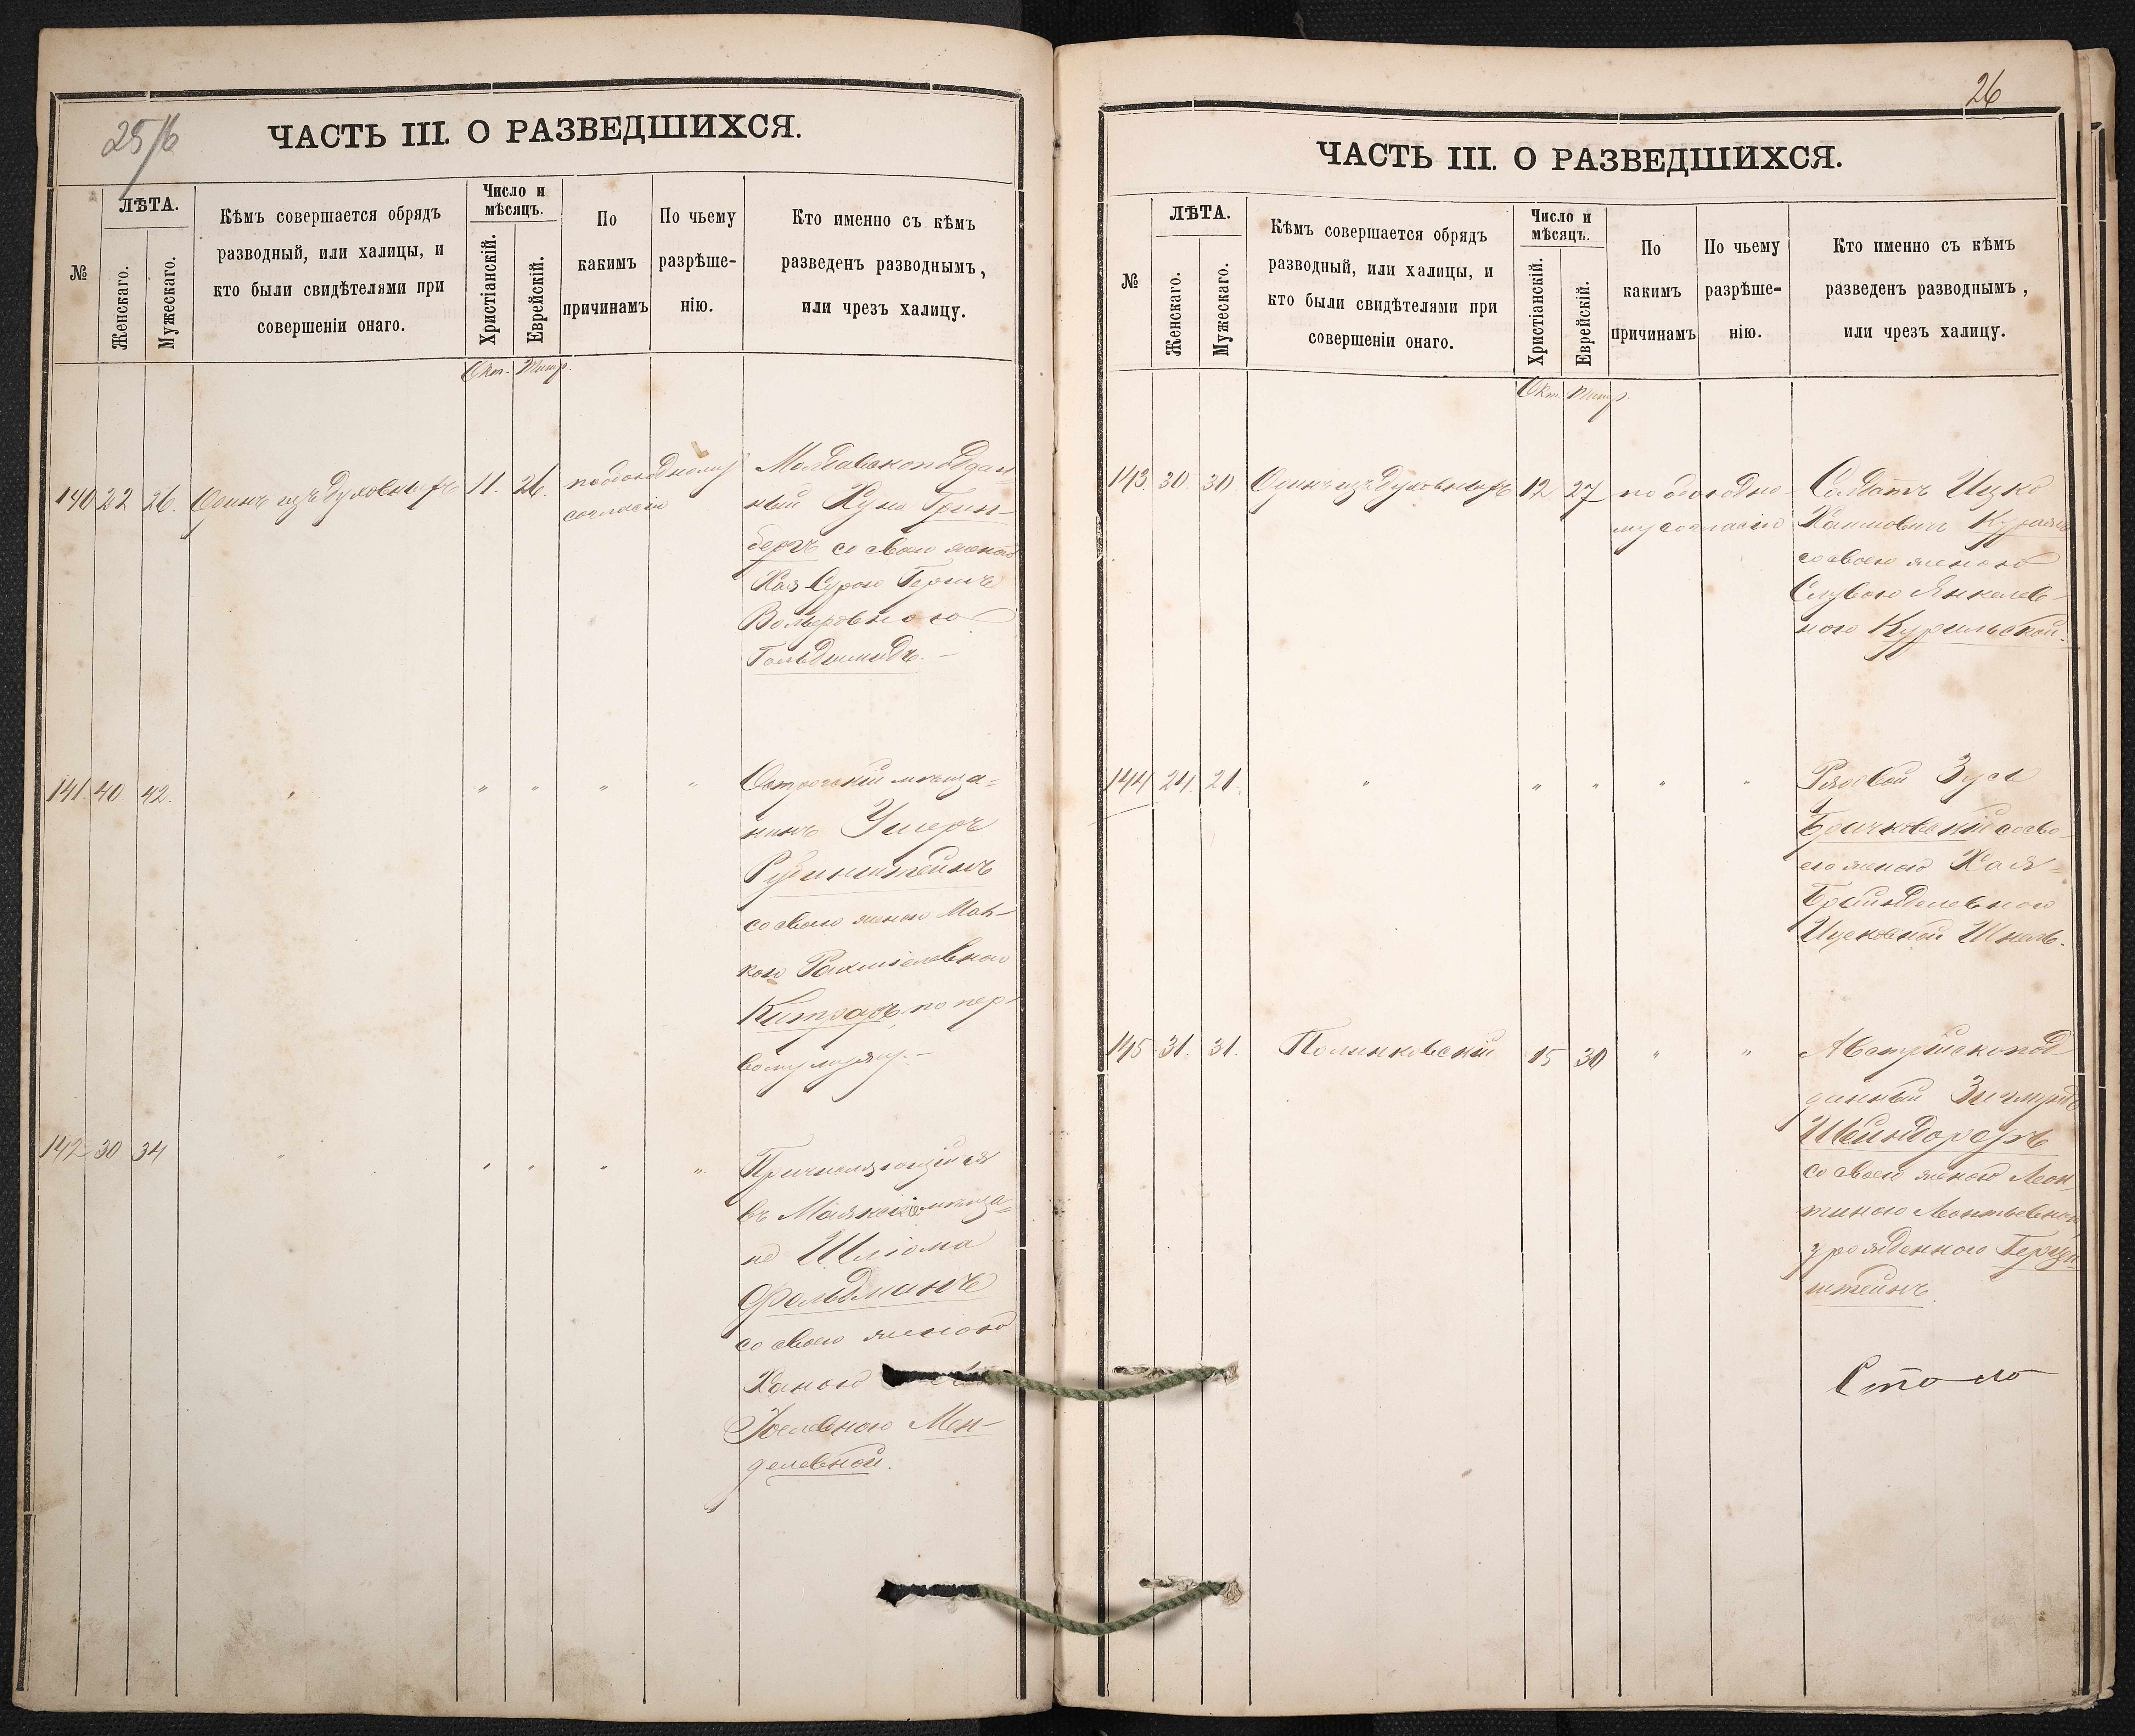 25/б
ЧАСТЬ III. О РАЗВЕДШИХСЯ.
№
ЛѢТА.
Женскаго.
Мужескаго.
Кѣмъ совершается обрядъ
разводный, или халицы, и
кто были свидѣтелями при
совершеніи онаго.
Число и
мѣсяцъ.
Христіанскій.
Еврейскій.
По
какимъ
причинамъ
По чьему
разрѣше-
нію.
Кто именно съ кѣмъ
разведенъ разводнымъ,
или чрезъ халицу.
Окт. Тишр.
140 22 26. Одинъ изъ духовныхъ 11. 26. по обоюдному
согласію
Молдавскоподдан-
ный Хуна Грин-
бергъ со своею женою
Хая Сурою Гершъ
Вольфовною
Гольдшмидъ. —
141. 40 42. " " " " "
Острогскій мѣща-
нинъ Ушеръ
Рубинштейнъ
со своею женою Мал-
кою Рахмielевною
по пер-
вому мужу. —
142 30 34 " " " " "
Причисляющійся
въ Маякскіе мѣща-
не Шліома
Фельдманъ
со своею женою
Ханою
Іоселевною Мен-
делевной.
26
ЧАСТЬ III. О РАЗВЕДШИХСЯ.
№
ЛѢТА.
Женскаго.
Мужескаго.
Кѣмъ совершается обрядъ
разводный, или халицы, и
кто были свидѣтелями при
совершеніи онаго.
Число и
мѣсяцъ.
Христіанскій.
Еврейскій.
По
какимъ
причинамъ
По чьему
разрѣше-
нію.
Кто именно съ кѣмъ
разведенъ разводнымъ,
или чрезъ халицу.
Окт. Тишр.
143 30. 30. Одинъ изъ духовныхъ 12 27 по обоюдно-
му согласію
Солдатъ Ицко
Хаимовичъ
со своею женою
Янкелев-
ною Курильской.
144 24. 21. " " " " "
Рядовой Зусь
со сво
ею женою Хая-
Брайнделевною
Шнель.
145 31. 31. Полинковскій 15 30 " "
Австрійскопод
данный Зигмундъ
Швейндореръ
со своею женою Леон
тиною Леонтьевною
урожденною Герцен
штейнъ.